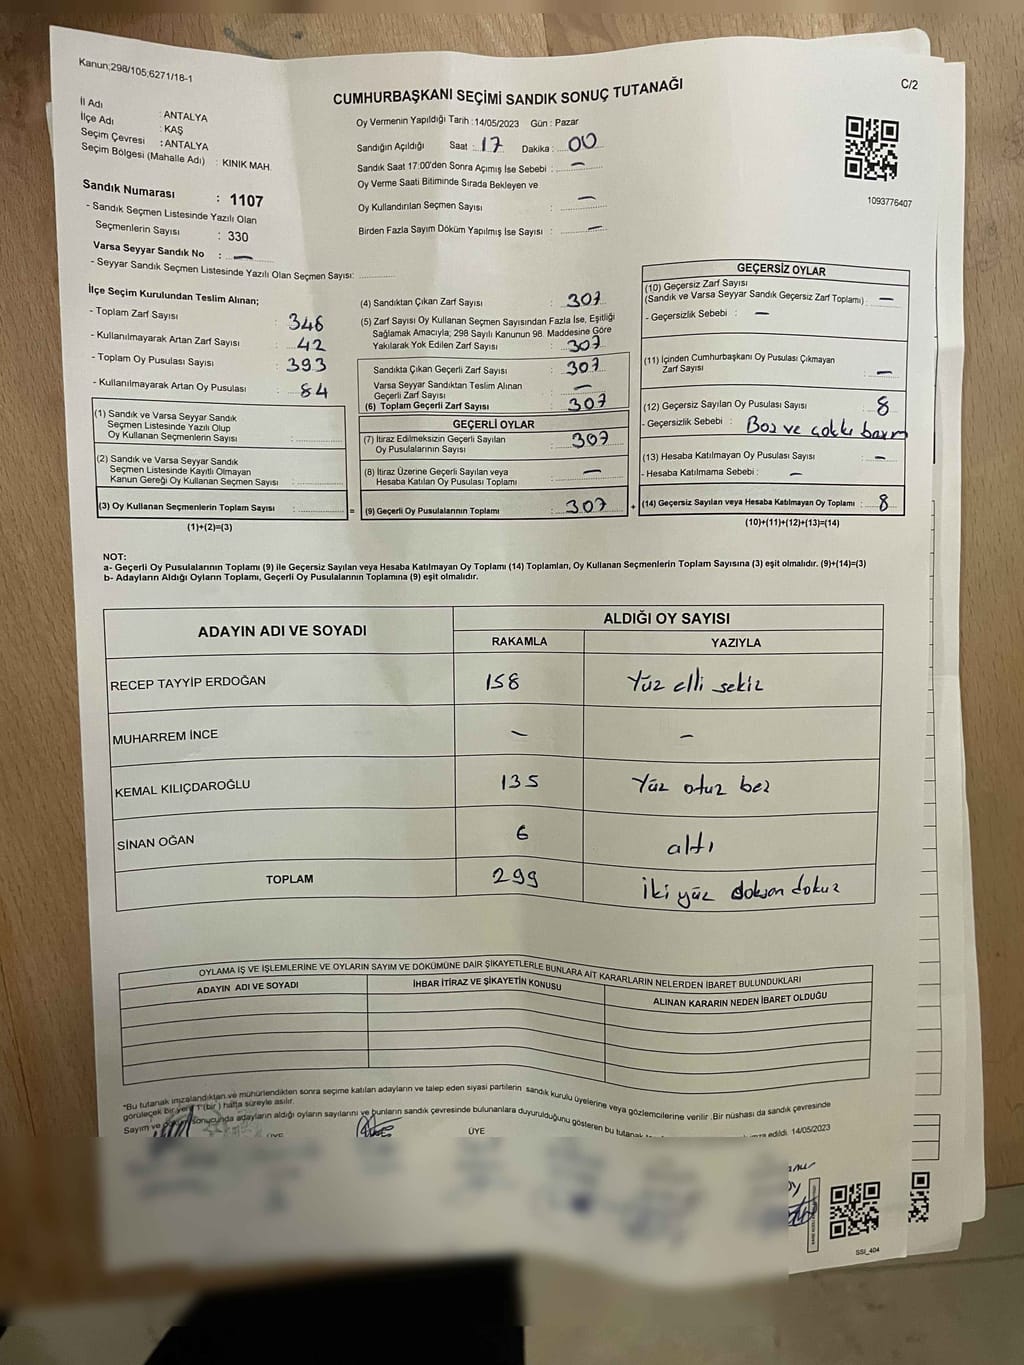 Kanun;298/105;6271/18-1
C/2
CUMHURBAŞKANI SEÇİMİ SANDIK SONUÇ TUTANAĞI
İl Adı : ANTALYA
İlçe Adı : KAŞ
Seçim Çevresi : ANTALYA
Seçim Bölgesi (Mahalle Adı) : KINIK MAH.
Oy Vermenin Yapıldığı Tarih : 14/05/2023 Gün : Pazar
Sandığın Açıldığı Saat : 17 Dakika : 00
Sandık Saat 17:00'den Sonra Açımış İse Sebebi : –
Oy Verme Saati Bitiminde Sırada Bekleyen ve
Oy Kullandırılan Seçmen Sayısı : –
Birden Fazla Sayım Döküm Yapılmış İse Sayısı : –
1093776407
Sandık Numarası : 1107
- Sandık Seçmen Listesinde Yazılı Olan
Seçmenlerin Sayısı : 330
Varsa Seyyar Sandık No : –
- Seyyar Sandık Seçmen Listesinde Yazılı Olan Seçmen Sayısı:
İlçe Seçim Kurulundan Teslim Alınan;
- Toplam Zarf Sayısı : 346
- Kullanılmayarak Artan Zarf Sayısı : 42
- Toplam Oy Pusulası Sayısı : 393
- Kullanılmayarak Artan Oy Pusulası : 84
(1) Sandık ve Varsa Seyyar Sandık
Seçmen Listesinde Yazılı Olup
Oy Kullanan Seçmenlerin Sayısı :
(2) Sandık ve Varsa Seyyar Sandık
Seçmen Listesinde Kayıtlı Olmayan
Kanun Gereği Oy Kullanan Seçmen Sayısı :
(3) Oy Kullanan Seçmenlerin Toplam Sayısı : =
(1)+(2)=(3)
(4) Sandıktan Çıkan Zarf Sayısı : 307
(5) Zarf Sayısı Oy Kullanan Seçmen Sayısından Fazla İse, Eşitliği
Sağlamak Amacıyla, 298 Sayılı Kanunun 98. Maddesine Göre
Yakılarak Yok Edilen Zarf Sayısı : 307
Sandıkta Çıkan Geçerli Zarf Sayısı : 307
Varsa Seyyar Sandıktan Teslim Alınan
Geçerli Zarf Sayısı : –
(6) Toplam Geçerli Zarf Sayısı : 307
GEÇERLİ OYLAR
(7) İtiraz Edilmeksizin Geçerli Sayılan
Oy Pusulalarının Sayısı : 307
(8) İtiraz Üzerine Geçerli Sayılan veya
Hesaba Katılan Oy Pusulası Toplamı : –
(9) Geçerli Oy Pusulalarının Toplamı : 307 +
GEÇERSİZ OYLAR
(10) Geçersiz Zarf Sayısı
(Sandık ve Varsa Seyyar Sandık Geçersiz Zarf Toplamı) : –
- Geçersizlik Sebebi : –
(11) İçinden Cumhurbaşkanı Oy Pusulası Çıkmayan
Zarf Sayısı : –
(12) Geçersiz Sayılan Oy Pusulası Sayısı : 8
- Geçersizlik Sebebi : Boş ve çoklu basım
(13) Hesaba Katılmayan Oy Pusulası Sayısı : –
- Hesaba Katılmama Sebebi : –
(14) Geçersiz Sayılan veya Hesaba Katılmayan Oy Toplamı : 8
(10)+(11)+(12)+(13)=(14)
NOT:
a- Geçerli Oy Pusulalarının Toplamı (9) ile Geçersiz Sayılan veya Hesaba Katılmayan Oy Toplamı (14) Toplamları, Oy Kullanan Seçmenlerin Toplam Sayısına (3) eşit olmalıdır. (9)+(14)=(3)
b- Adayların Aldığı Oyların Toplamı, Geçerli Oy Pusulalarının Toplamına (9) eşit olmalıdır.
ADAYIN ADI VE SOYADI ALDIĞI OY SAYISI
RAKAMLA YAZIYLA
RECEP TAYYİP ERDOĞAN 158 Yüz elli sekiz
MUHARREM İNCE – –
KEMAL KILIÇDAROĞLU 135 Yüz otuz beş
SİNAN OĞAN 6 altı
TOPLAM 299 İki yüz doksan dokuz
OYLAMA İŞ VE İŞLEMLERİNE VE OYLARIN SAYIM VE DÖKÜMÜNE DAİR ŞİKAYETLERLE BUNLARA AİT KARARLARIN NELERDEN İBARET BULUNDUKLARI
ADAYIN ADI VE SOYADI İHBAR İTİRAZ VE ŞİKAYETİN KONUSU ALINAN KARARIN NEDEN İBARET OLDUĞU
*Bu tutanak imzalandıktan ve mühürlendikten sonra seçime katılan adayların ve talep eden siyasi partilerin sandık kurulu üyelerine veya gözlemcilerine verilir. Bir nüshası da sandık çevresinde
görülecek bir yere 1 (bir) hafta süreyle asılır.
Sayım ve döküm sonucunda adayların aldığı oyların sayılarını ve bunların sandık çevresinde bulunanlara duyurulduğunu gösteren bu tutanak edildi. 14/05/2023
ÜYE ÜYE
SSI_404